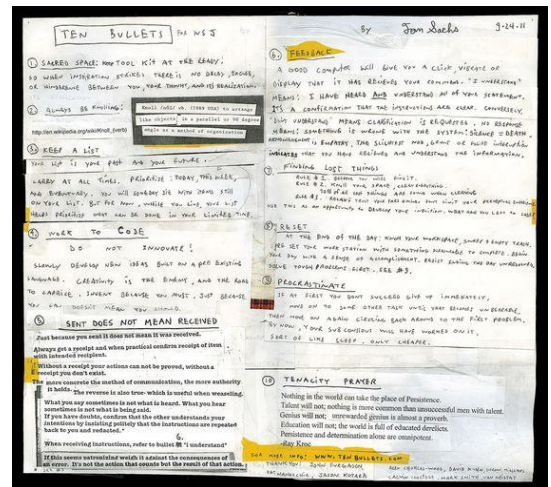 TEN BULLETS FOR NSJ
By Tom Sachs 9-24-11
① SACRED SPACE: KEEP TOOL KIT AT THE READY,
SO WHEN INSPIRATION STRIKES THERE IS NO DELAY,
OR HINDRANCE BETWEEN YOU, YOUR THING, AND ITS REALIZATION.
② ALWAYS BE KNOLLING:
Knoll /nōl/ vb. (1989 USA) to arrange
like objects in a parallel or 90 degree
angle as a method of organization
http://en.wikipedia.org/wiki/Knoll_(verb)
③ KEEP A LIST
YOUR LIST IS YOUR PAST AND YOUR FUTURE.
CARRY AT ALL TIMES. PRIORITIZE: TODAY, THIS WEEK,
AND EVENTUALLY. YOU WILL SOMEDAY DIE WITH ITEMS STILL
ON YOUR LIST. BUT FOR NOW, WHILE YOU LIVE, YOUR LIST
HELPS PRIORITIZE WHAT CAN BE DONE IN YOUR LIMITED TIME.
④ WORK TO CODE
DO NOT INNOVATE!
SLOWLY DEVELOP NEW IDEAS BUILT ON A PRE EXISTING
LANGUAGE. CREATIVITY IS THE ENEMY, AND THE ROAD
TO CAPRICE. INVENT BECAUSE YOU MUST, JUST BECAUSE
YOU CAN DOESN'T MEAN YOU SHOULD.
⑤ SENT DOES NOT MEAN RECEIVED
Just because you sent it does not mean it was received.
Always get a receipt and when practical confirm receipt of item
with intended recipient.
Without a receipt your actions can not be proved, without a
receipt you don't exist.
The more concrete the method of communication, the more authority
it holds.
The reverse is also true- which is useful when weaseling.
What you say sometimes is not what is heard. What you hear
sometimes is not what is being said.
If you have doubts, confirm that the other understands your
intentions by insisting politely that the instructions are repeated
back to you and redacted."
When receiving instructions, refer to bullet 6. "i understand"
If this seems patronizing weigh it against the consequences of
an error. It's not the action that counts but the result of that action.
⑥ FEEDBACK
A GOOD COMPUTER WILL GIVE YOU A CLICK, VIBRATE OR
DISPLAY THAT IT HAS RECEIVED YOUR COMMAND. "I UNDERSTAND"
MEANS: I HAVE HEARD AND UNDERSTAND ALL OF YOUR STATEMENT,
IT'S A CONFIRMATION THAT THE INSTRUCTIONS ARE CLEAR. CONVERSELY,
MEANS CLARIFICATION IS REQUESTED. NO RESPONSE
MEANS: SOMETHING IS WRONG WITH THE SYSTEM: SILENCE = DEATH.
IS EMPATHY. THE SLIGHTEST NOD, GRUNT OR
INDICATES THAT YOU HAVE RECEIVED AND UNDERSTAND THE INFORMATION.
⑦ FINDING LOST THINGS
RULE #1.
RULE #2. KNOW YOUR SPACE,
OF ALL LOST THINGS ARE FOUND WHEN CLEANING
USE THIS AS AN OPPORTUNITY TO DEVELOP YOUR INTUITION. WHAT HAVE YOU LEFT TO LOSE?
⑧ RESET
AT THE END OF THE DAY: KNOLL YOUR WORKSPACE, SWEEP & EMPTY TRASH.
PRE SET YOUR WORK STATION WITH SOMETHING TO COMPLETE. BEGIN
YOUR DAY WITH A SENSE OF ACCOMPLISHMENT.
SOLVE TOUGH PROBLEMS FIRST. SEE #9.
⑨ PROCRASTINATE
IF AT FIRST YOU DON'T SUCCEED GIVE UP IMMEDIATELY,
MOVE ON TO SOME OTHER TASK UNTIL THAT BECOMES UNBEARABLE.
THEN MOVE ON AGAIN CIRCLING BACK AROUND TO THE FIRST PROBLEM.
BY NOW, YOUR SUBCONSCIOUS WILL HAVE WORKED ON IT.
SORT OF LIKE SLEEP, ONLY CHEAPER.
⑩ TENACITY PRAYER
Nothing in the world can take the place of Persistence.
Talent will not; nothing is more common than unsuccessful men with talent.
Genius will not; unrewarded genius is almost a proverb.
Education will not; the world is full of educated derelicts.
Persistence and determination alone are omnipotent.
-Ray Kroc
FOR MORE INFO: WWW.TENBULLETS.COM